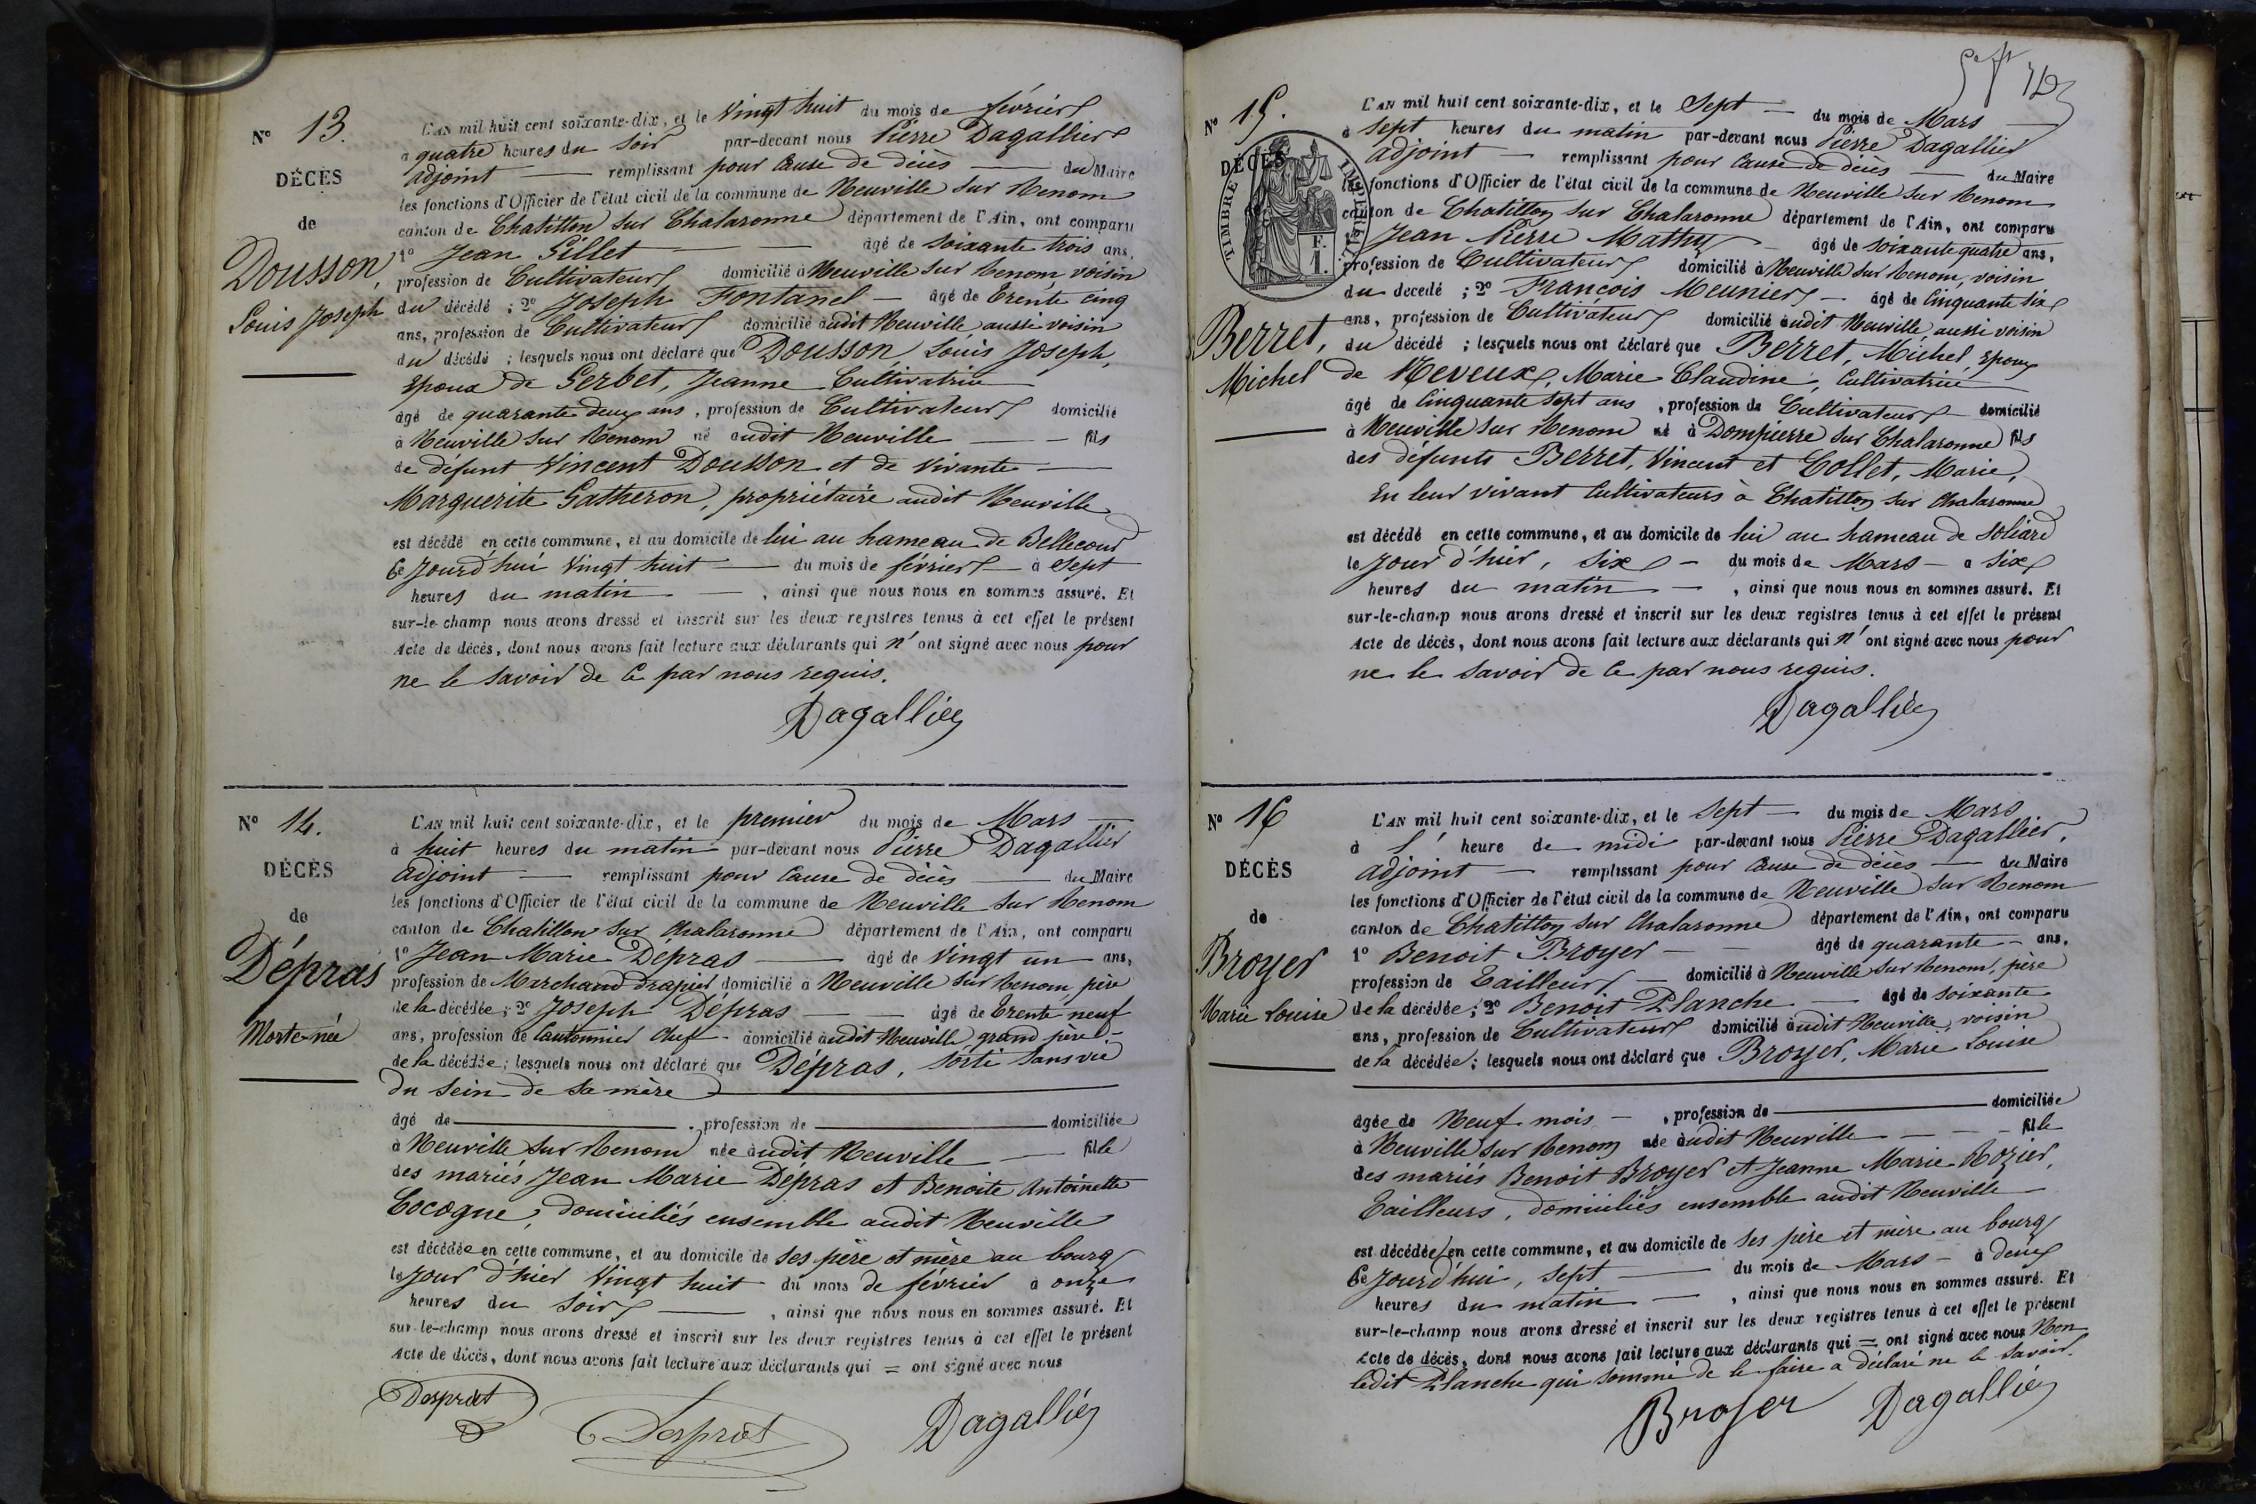 N° 13.
DÉCÈS
de
Dousson,
Louis Joseph
L'AN mil huit cent soixante-dix, et le Vingt huit du mois de février
à quatre heures du soir par-devant nous Pierre Dagallier
adjoint remplissant pour cause de décès du Maire
les fonctions d'Officier de l'état civil de la commune de Neuville sur Renom
canton de Chatillon sur Chalaronne département de l'Ain, ont comparu
1° Jean Gillet âgé de soixante trois ans,
profession de Cultivateur domicilié à Neuville sur Renom, voisin
du décédé ; 2° Joseph Fontanel âgé de trente cinq
ans, profession de Cultivateur domicilié audit Neuville aussi voisin
du décédé ; lesquels nous ont déclaré que Dousson, Louis Joseph,
Epoux de Gerbet, Jeanne Cultivatrice
âgé de quarante deux ans, profession de Cultivateur domicilié
à Neuville sur Renom né audit Neuville fils
de défunt Vincent Dousson et de vivante
Marguerite Gatheron, propriétaire audit Neuville
est décédé en cette commune, et au domicile de lui au hameau de Bellecour
Ce jourd'hui Vingt huit du mois de février à sept
heures du matin, ainsi que nous nous en sommes assuré. Et
sur-le-champ nous avons dressé et inscrit sur les deux registres tenus à cet effet le présent
Acte de décès, dont nous avons fait lecture aux déclarants qui n'ont signé avec nous pour
ne le savoir de ce par nous requis.
Dagallier
N° 14.
DÉCÈS
de
Dépras
Morte-née
L'AN mil huit cent soixante-dix, et le premier du mois de Mars
à huit heures du matin par-devant nous Pierre Dagallier
adjoint remplissant pour cause de décès du Maire
les fonctions d'Officier de l'état civil de la commune de Neuville sur Renom
canton de Chatillon sur Chalaronne département de l'Ain, ont comparu
1° Jean Marie Dépras âgé de Vingt un ans,
profession de Marchand drapier domicilié à Neuville sur Renom père
de la décédée ; 2° Joseph Dépras âgé de trente neuf
ans, profession de Cantonnier chef domicilié audit Neuville grand père
de la décédée ; lesquels nous ont déclaré que Dépras, sorti sans vie
du sein de sa mère
âgé de profession de domiciliée
à Neuville sur Renom née audit Neuville fille
des mariés Jean Marie Dépras et Benoite Antoinette
Cocogne, domiciliés ensemble audit Neuville
est décédée en cette commune, et au domicile de ses père et mère au bourg
le jour d'hier Vingt huit du mois de février à onze
heures du soir, ainsi que nous nous en sommes assuré. Et
sur-le-champ nous avons dressé et inscrit sur les deux registres tenus à cet effet le présent
Acte de décès, dont nous avons fait lecture aux déclarants qui = ont signé avec nous
Desprat Desprat Dagallier
N° 15.
DÉCÈS
TIMBRE IMPÉRIAL
F.
1.
Berret,
Michel
L'AN mil huit cent soixante-dix, et le Sept du mois de Mars
à sept heures du matin par-devant nous Pierre Dagallier
adjoint remplissant pour cause de décès du Maire
les fonctions d'Officier de l'état civil de la commune de Neuville sur Renom
canton de Chatillon sur Chalaronne département de l'Ain, ont comparu
Jean Pierre Mathy âgé de soixante quatre ans,
profession de Cultivateur domicilié à Neuville sur Renom, voisin
du décédé ; 2° François Meunier âgé de cinquante six
ans, profession de Cultivateur domicilié audit Neuville aussi voisin
du décédé ; lesquels nous ont déclaré que Berret, Michel, Epoux
de Neveux, Marie Claudine, Cultivatrice
âgé de cinquante sept ans, profession de Cultivateur domicilié
à Neuville sur Renom né à Dompierre sur Chalaronne fils
des défunts Berret, Vincent et Collet, Marie,
En leur vivant cultivateurs à Chatillon sur Chalaronne
est décédé en cette commune, et au domicile de lui au hameau de Soliard
le jour d'hier, six du mois de Mars à six
heures du matin, ainsi que nous nous en sommes assuré. Et
sur-le-champ nous avons dressé et inscrit sur les deux registres tenus à cet effet le présent
Acte de décès, dont nous avons fait lecture aux déclarants qui n'ont signé avec nous pour
ne le savoir de ce par nous requis.
Dagallier
N° 16
DÉCÈS
de
Broyer
Marie Louise
L'AN mil huit cent soixante-dix, et le Sept du mois de Mars
à l' heure de midi par-devant nous Pierre Dagallier,
adjoint remplissant pour cause de décès du Maire
les fonctions d'Officier de l'état civil de la commune de Neuville sur Renom
canton de Chatillon sur Chalaronne département de l'Ain, ont comparu
1° Benoit Broyer âgé de quarante ans,
profession de Tailleur domicilié à Neuville sur Renom, père
de la décédée ; 2° Benoit Planche âgé de soixante
ans, profession de Cultivateur domicilié audit Neuville, voisin
de la décédée ; lesquels nous ont déclaré que Broyer, Marie Louise
âgée de Neuf mois, profession de domiciliée
à Neuville sur Renom née audit Neuville fille
des mariés Benoit Broyer et Jeanne Marie Rozier,
Tailleurs, domiciliés ensemble audit Neuville
est décédée en cette commune, et au domicile de ses père et mère au bourg
Ce jourd'hui, sept du mois de Mars à deux
heures du matin, ainsi que nous nous en sommes assuré. Et
sur-le-champ nous avons dressé et inscrit sur les deux registres tenus à cet effet le présent
Acte de décès, dont nous avons fait lecture aux déclarants qui = ont signé avec nous Non
ledit Planche qui sommé de le faire a déclaré ne le savoir.
Broyer Dagallier